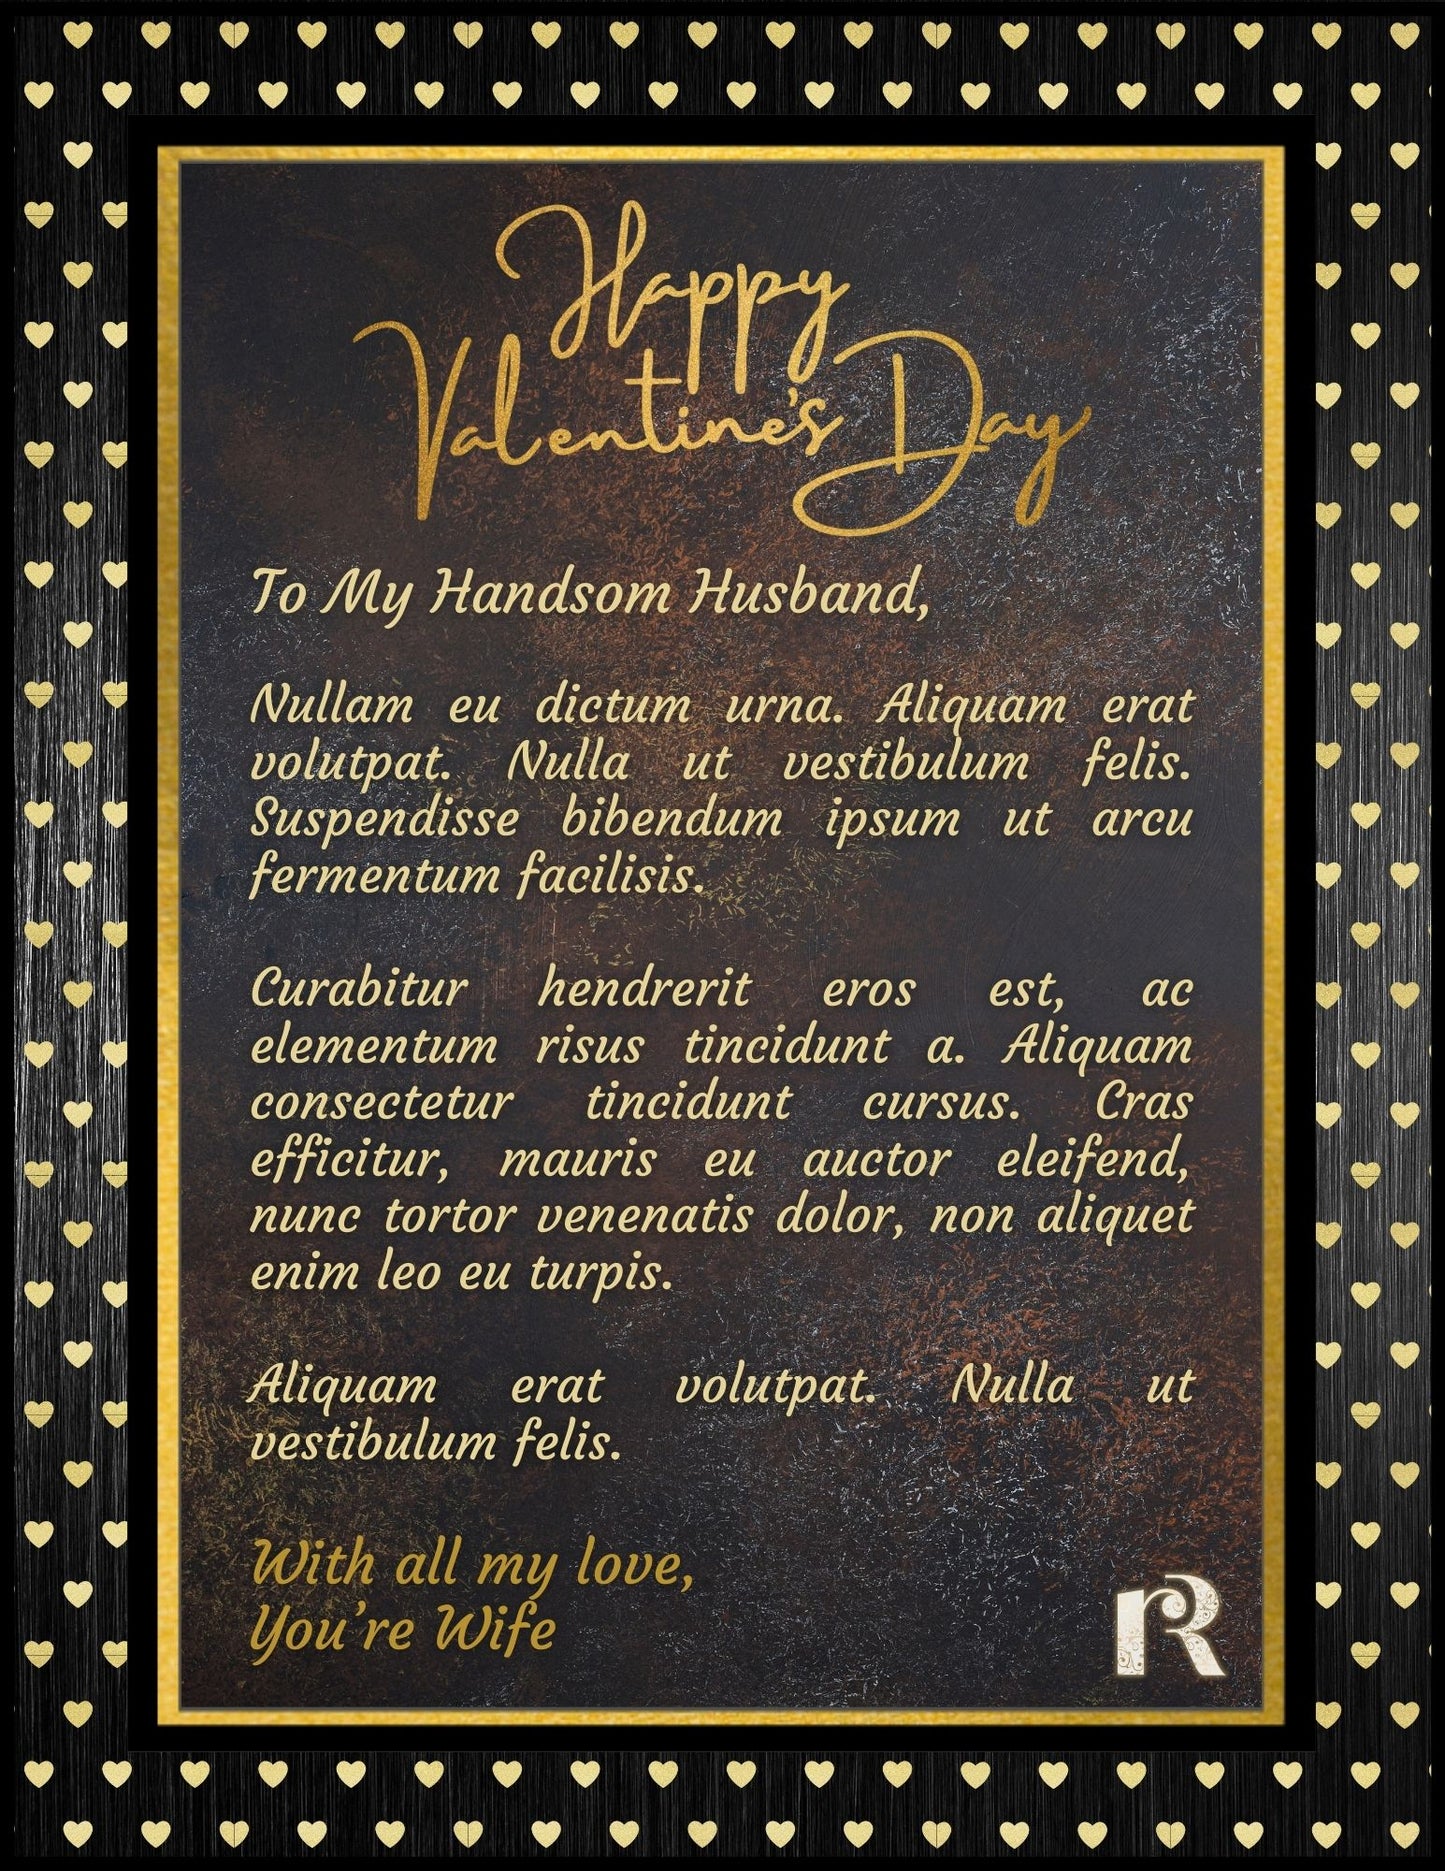 Happy
Valentine's Day
To My Handsom Husband,
Nullam eu dictum urna. Aliquam erat
volutpat. Nulla ut vestibulum felis.
Suspendisse bibendum ipsum ut arcu
fermentum facilisis.
Curabitur hendrerit eros est, ac
elementum risus tincidunt a. Aliquam
consectetur tincidunt cursus. Cras
efficitur, mauris eu auctor eleifend,
nunc tortor venenatis dolor, non aliquet
enim leo eu turpis.
Aliquam erat volutpat. Nulla ut
vestibulum felis.
With all my love,
You're Wife
R